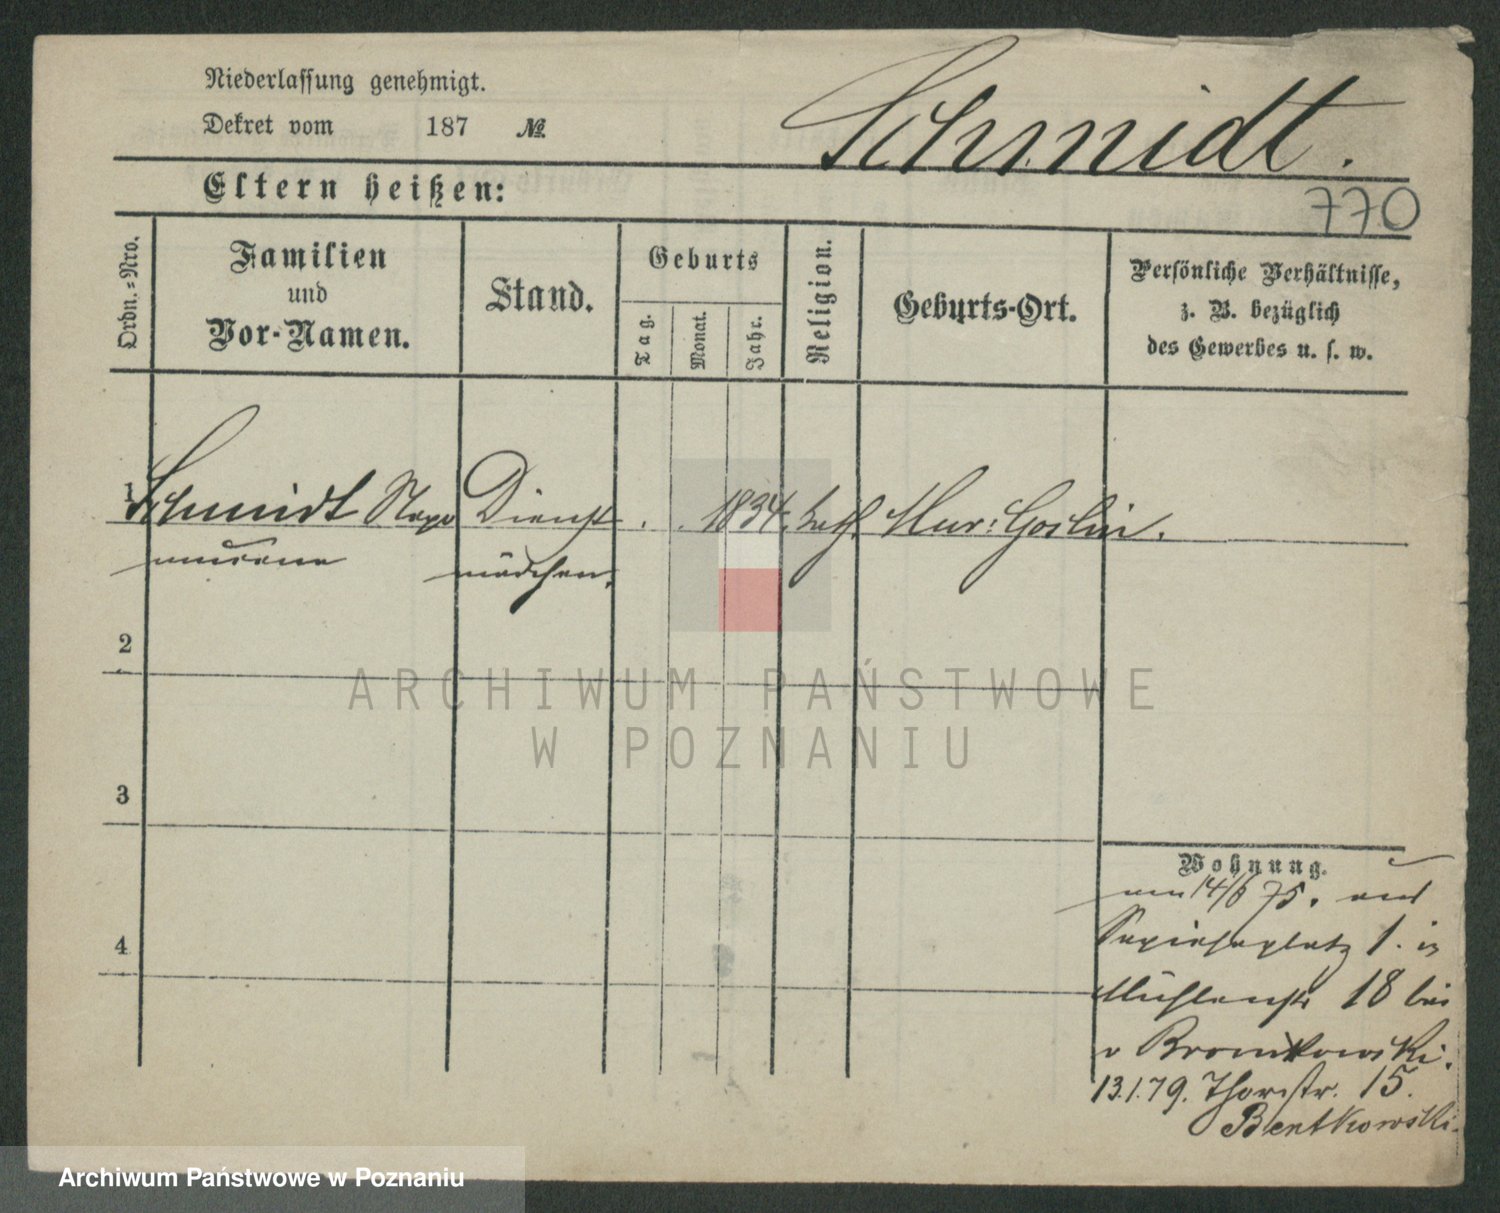 Niederlassung genehmigt.
Dekret vom 187 №
Schmidt.
770
Eltern heißen:
Ordn.-Nro.
Familien
und
Vor-Namen.
Stand.
Geburts
Tag.
Monat.
Jahr.
Religion.
Geburts-Ort.
Persönliche Verhältnisse,
z. B. bezüglich
des Gewerbes u. s. w.
1 Schmidt Dienst 1834. kath. Mur: Goslin.
mädchen.
2
3
4
Wohnung.
14/6 75.
Sapiehaplatz 1. in
Mühlenstr 18 bei
v Bronikowski.
13.1.79. Thorstr. 15.
Bentkowski.
ARCHIWUM PAŃSTWOWE
W POZNANIU
Archiwum Państwowe w Poznaniu